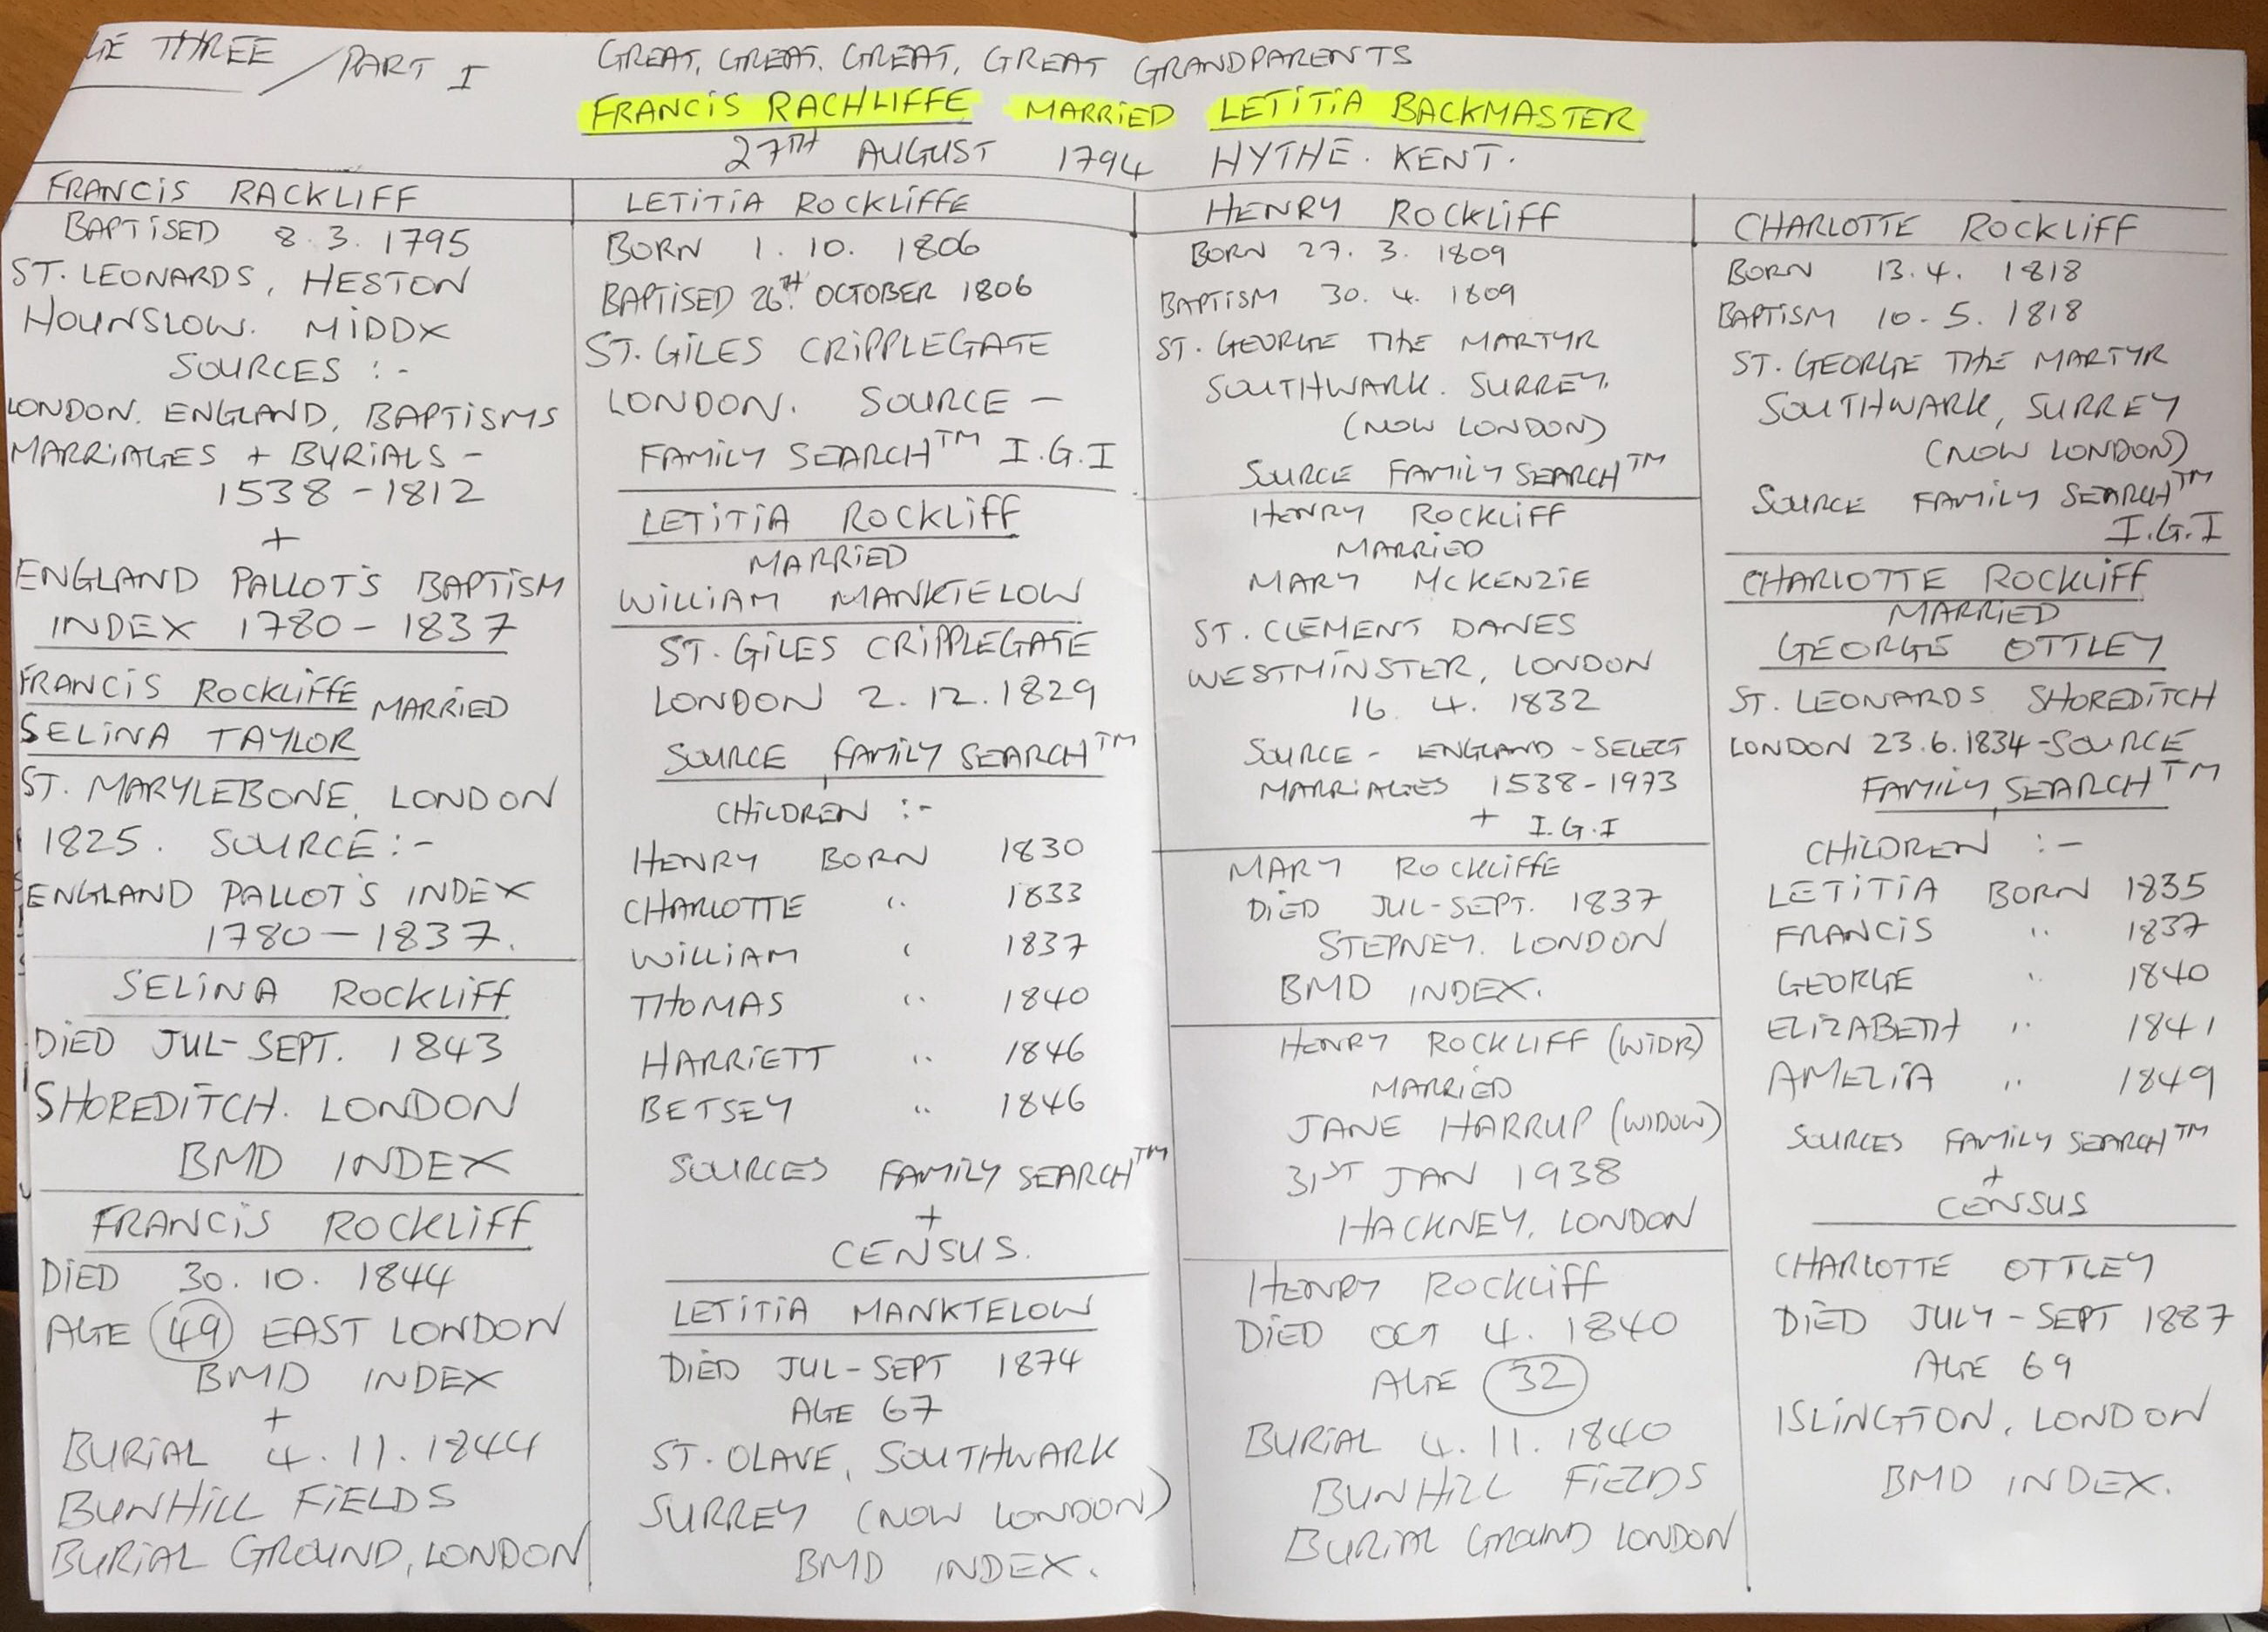 GE THREE / PART I
GREAT, GREAT. GREAT, GREAT GRANDPARENTS
FRANCIS RACHLIFFE MARRIED LETITIA BACKMASTER
27TH AUGUST 1794 HYTHE. KENT.
FRANCIS RACKLIFF
BAPTISED 8.3.1795
ST. LEONARDS, HESTON
HOUNSLOW. MIDDX
SOURCES :-
LONDON. ENGLAND, BAPTISMS
MARRIAGES + BURIALS -
1538-1812
+
ENGLAND PALLOT'S BAPTISM
INDEX 1780-1837
FRANCIS ROCKLIFFE MARRIED
SELINA TAYLOR
ST. MARYLEBONE, LONDON
1825. SOURCE:-
ENGLAND PALLOT'S INDEX
1780-1837.
SELINA ROCKLIFF
DIED JUL-SEPT. 1843
SHOREDITCH. LONDON
BMD INDEX
FRANCIS ROCKLIFF
DIED 30.10.1844
AGE 49 EAST LONDON
BMD INDEX
+
BURIAL 4.11.1844
BUNHILL FIELDS
BURIAL GROUND, LONDON
LETITIA ROCKLIFFE
BORN 1.10.1806
BAPTISED 26TH OCTOBER 1806
ST. GILES CRIPPLEGATE
LONDON. SOURCE -
FAMILY SEARCH™ I.G.I
LETITIA ROCKLIFF
MARRIED
WILLIAM MANKTELOW
ST. GILES CRIPPLEGATE
LONDON 2.12.1829
SOURCE FAMILY SEARCH™
CHILDREN :-
HENRY BORN 1830
CHARLOTTE " 1833
WILLIAM " 1837
THOMAS " 1840
HARRIETT " 1846
BETSEY " 1846
SOURCES FAMILY SEARCH™
+
CENSUS.
LETITIA MANKTELOW
DIED JUL-SEPT 1874
AGE 67
ST. OLAVE, SOUTHWARK
SURREY (NOW LONDON)
BMD INDEX.
HENRY ROCKLIFF
BORN 27.3.1809
BAPTISM 30.4.1809
ST. GEORGE THE MARTYR
SOUTHWARK. SURREY.
(NOW LONDON)
SOURCE FAMILY SEARCH™
HENRY ROCKLIFF
MARRIED
MARY MCKENZIE
ST. CLEMENT DANES
WESTMINSTER, LONDON
16.4.1832
SOURCE - ENGLAND - SELECT
MARRIAGES 1538-1973
+ I.G.I
MARY ROCKLIFFE
DIED JUL-SEPT. 1837
STEPNEY. LONDON
BMD INDEX.
HENRY ROCKLIFF (WIDR)
MARRIED
JANE HARRUP (WIDOW)
31ST JAN 1938
HACKNEY, LONDON
HENRY ROCKLIFF
DIED OCT 4. 1840
AGE 32
BURIAL 4.11.1840
BUNHILL FIELDS
BURIAL GROUND LONDON
CHARLOTTE ROCKLIFF
BORN 13.4.1818
BAPTISM 10-5.1818
ST. GEORGE THE MARTYR
SOUTHWARK, SURREY
(NOW LONDON)
SOURCE FAMILY SEARCH™
I.G.I
CHARLOTTE ROCKLIFF
MARRIED
GEORGE OTTLEY
ST. LEONARDS SHOREDITCH
LONDON 23.6.1834-SOURCE
FAMILY SEARCH™
CHILDREN :-
LETITIA BORN 1835
FRANCIS " 1837
GEORGE " 1840
ELIZABETH " 1841
AMELIA " 1849
SOURCES FAMILY SEARCH™
+
CENSUS
CHARLOTTE OTTLEY
DIED JULY-SEPT 1887
AGE 69
ISLINGTON, LONDON
BMD INDEX.